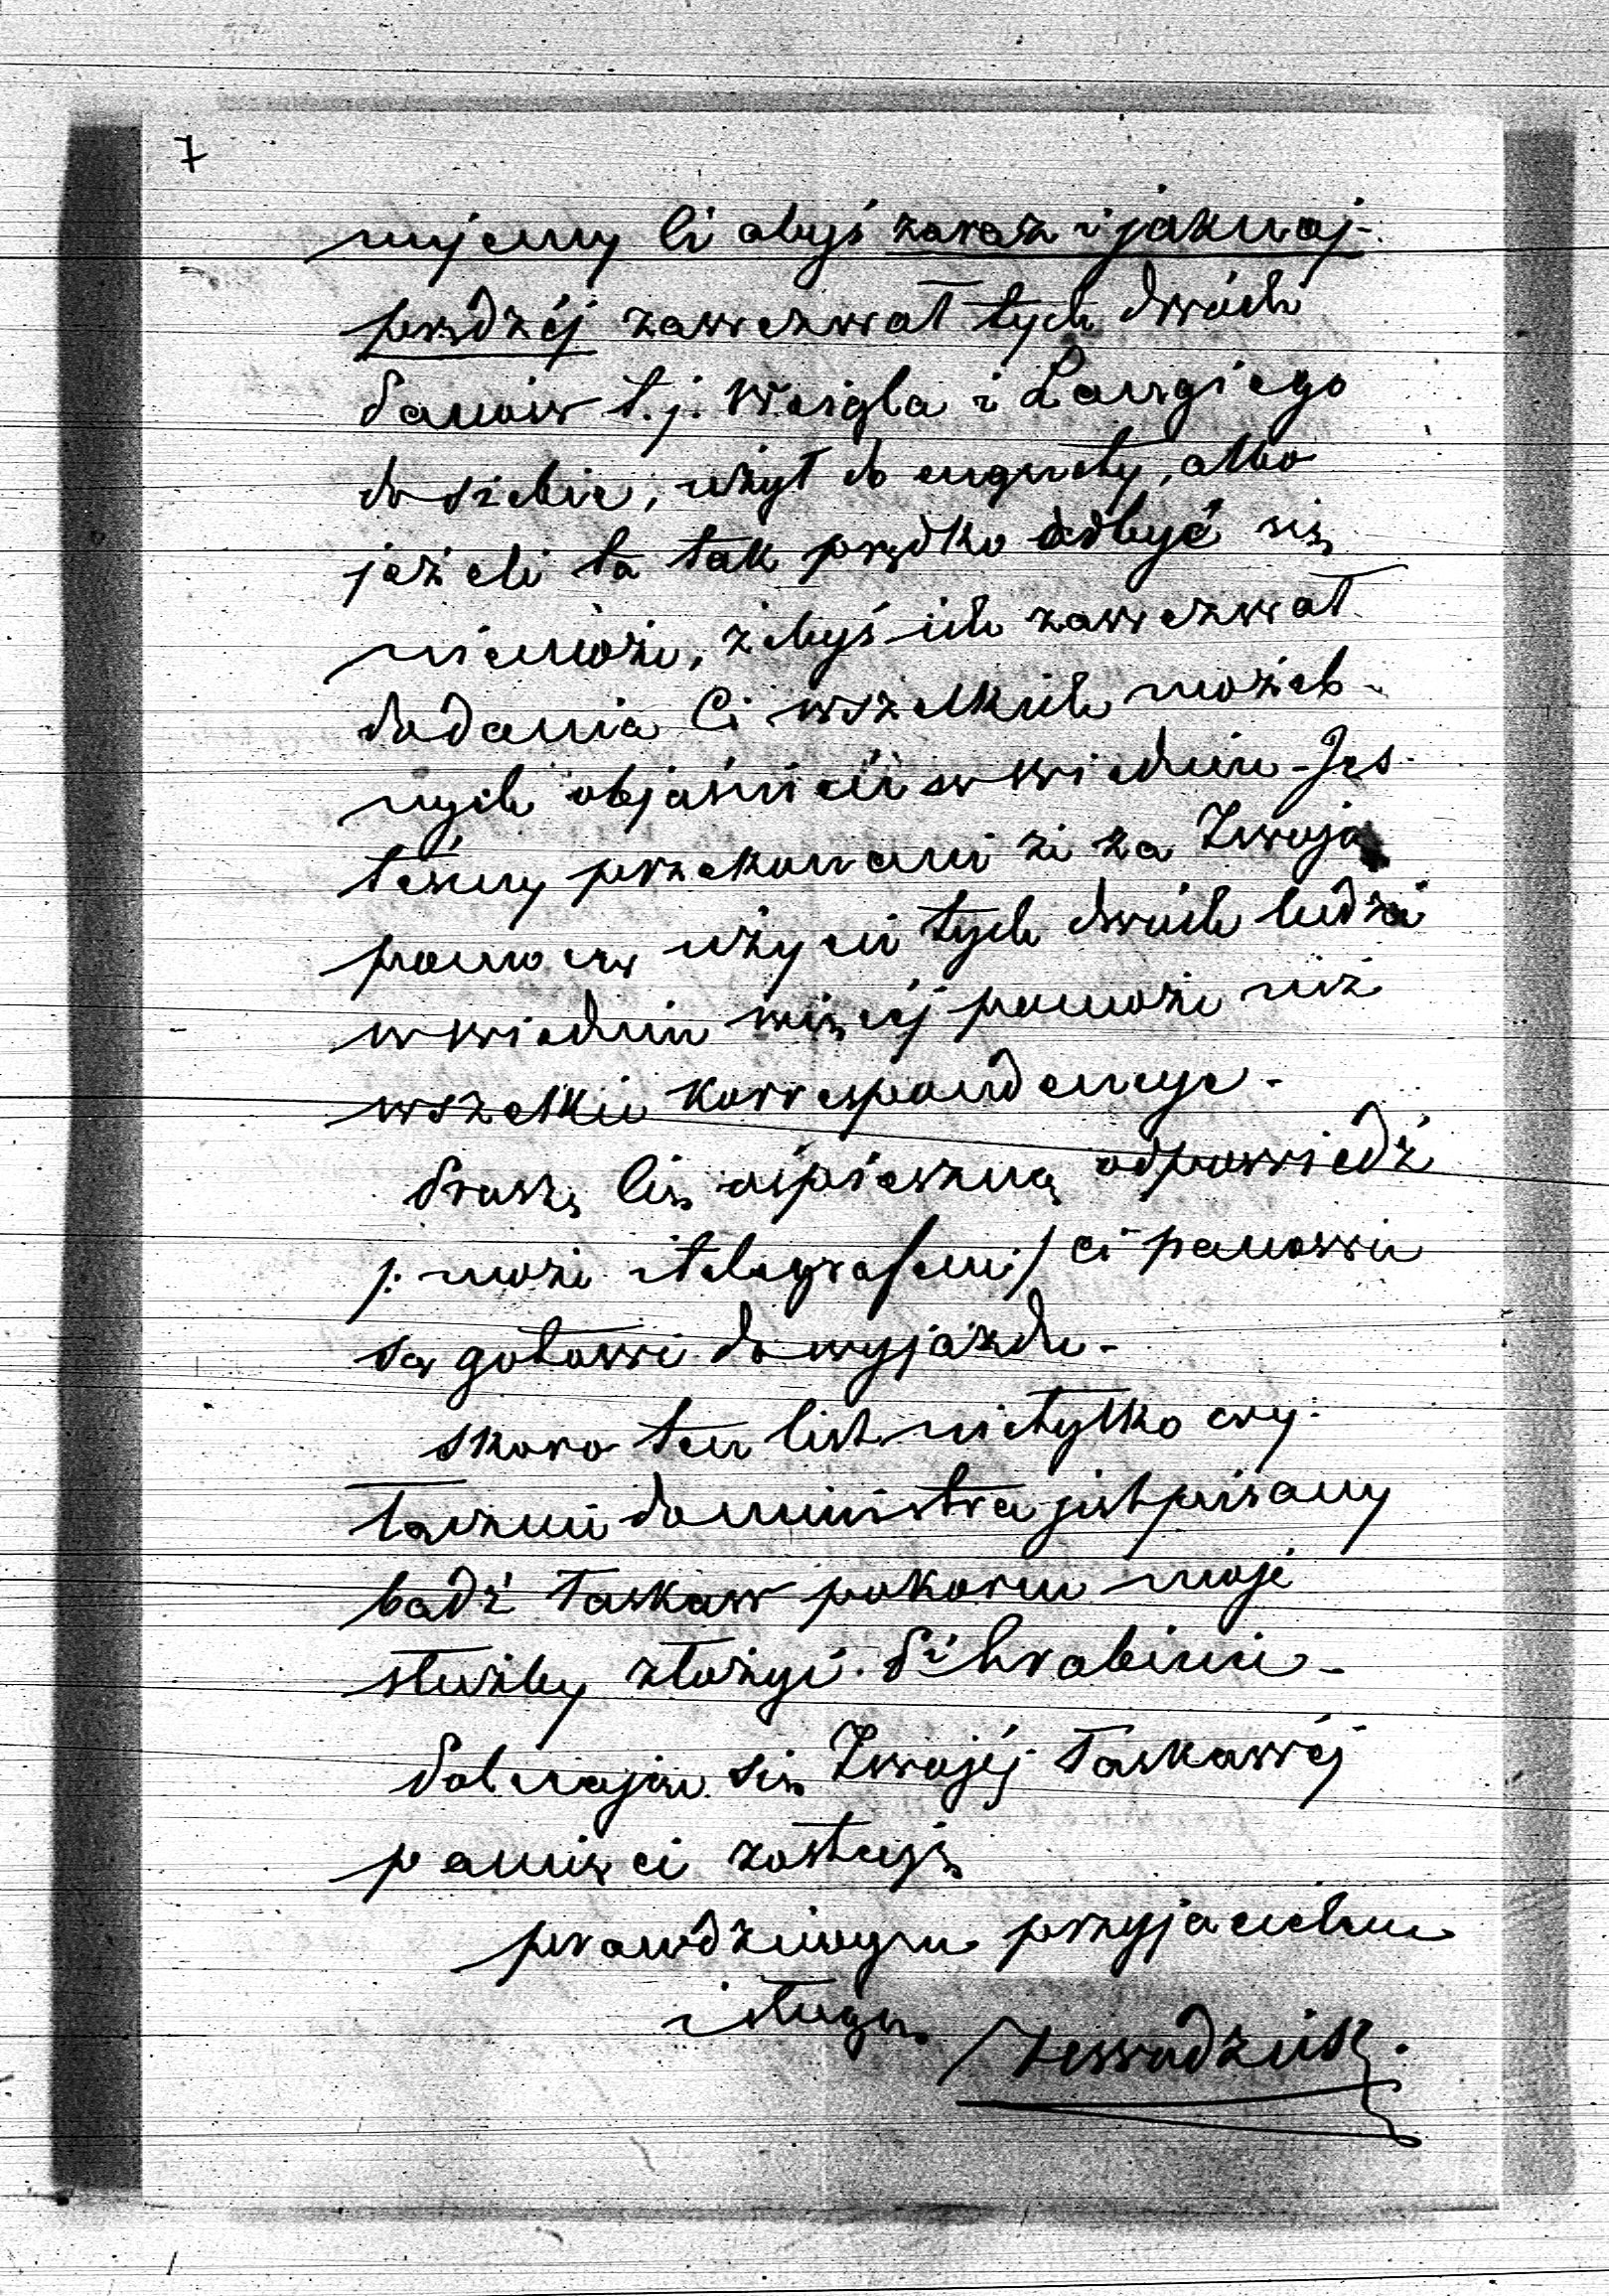 7
nujemy Ci abyś zaraz i jaknaj-
prędzéj zawezwał tych dwóch
Panów t. j. Weigla i Langiego
do siebie, użył do enquety, albo
jeżeli ta tak prędko odbyć się
niemoże, żebyś ich zawezwał
do dania Ci wszelkich możeb-
nych objaśnień w Wiedniu - Jes-
teśmy przekonani że za Twoją
pomocą użycie tych dwóch ludzi
w Wiedniu więcéj pomoże niż
wszelkie korrespondencye -
Proszę Cię o śpieszną odpowiedź
/: może telegrafem :/ ci panowie
są gotowi do wyjazdu -
Skoro ten list nietylko wy-
łącznie do ministra jest pisany
bądź łaskaw pokorne moje
służby złożyć Pi hrabinie -
Polecając się Twojéj łaskawéj
pamięci zostaję
prawdziwym przyjacielem
i sługą